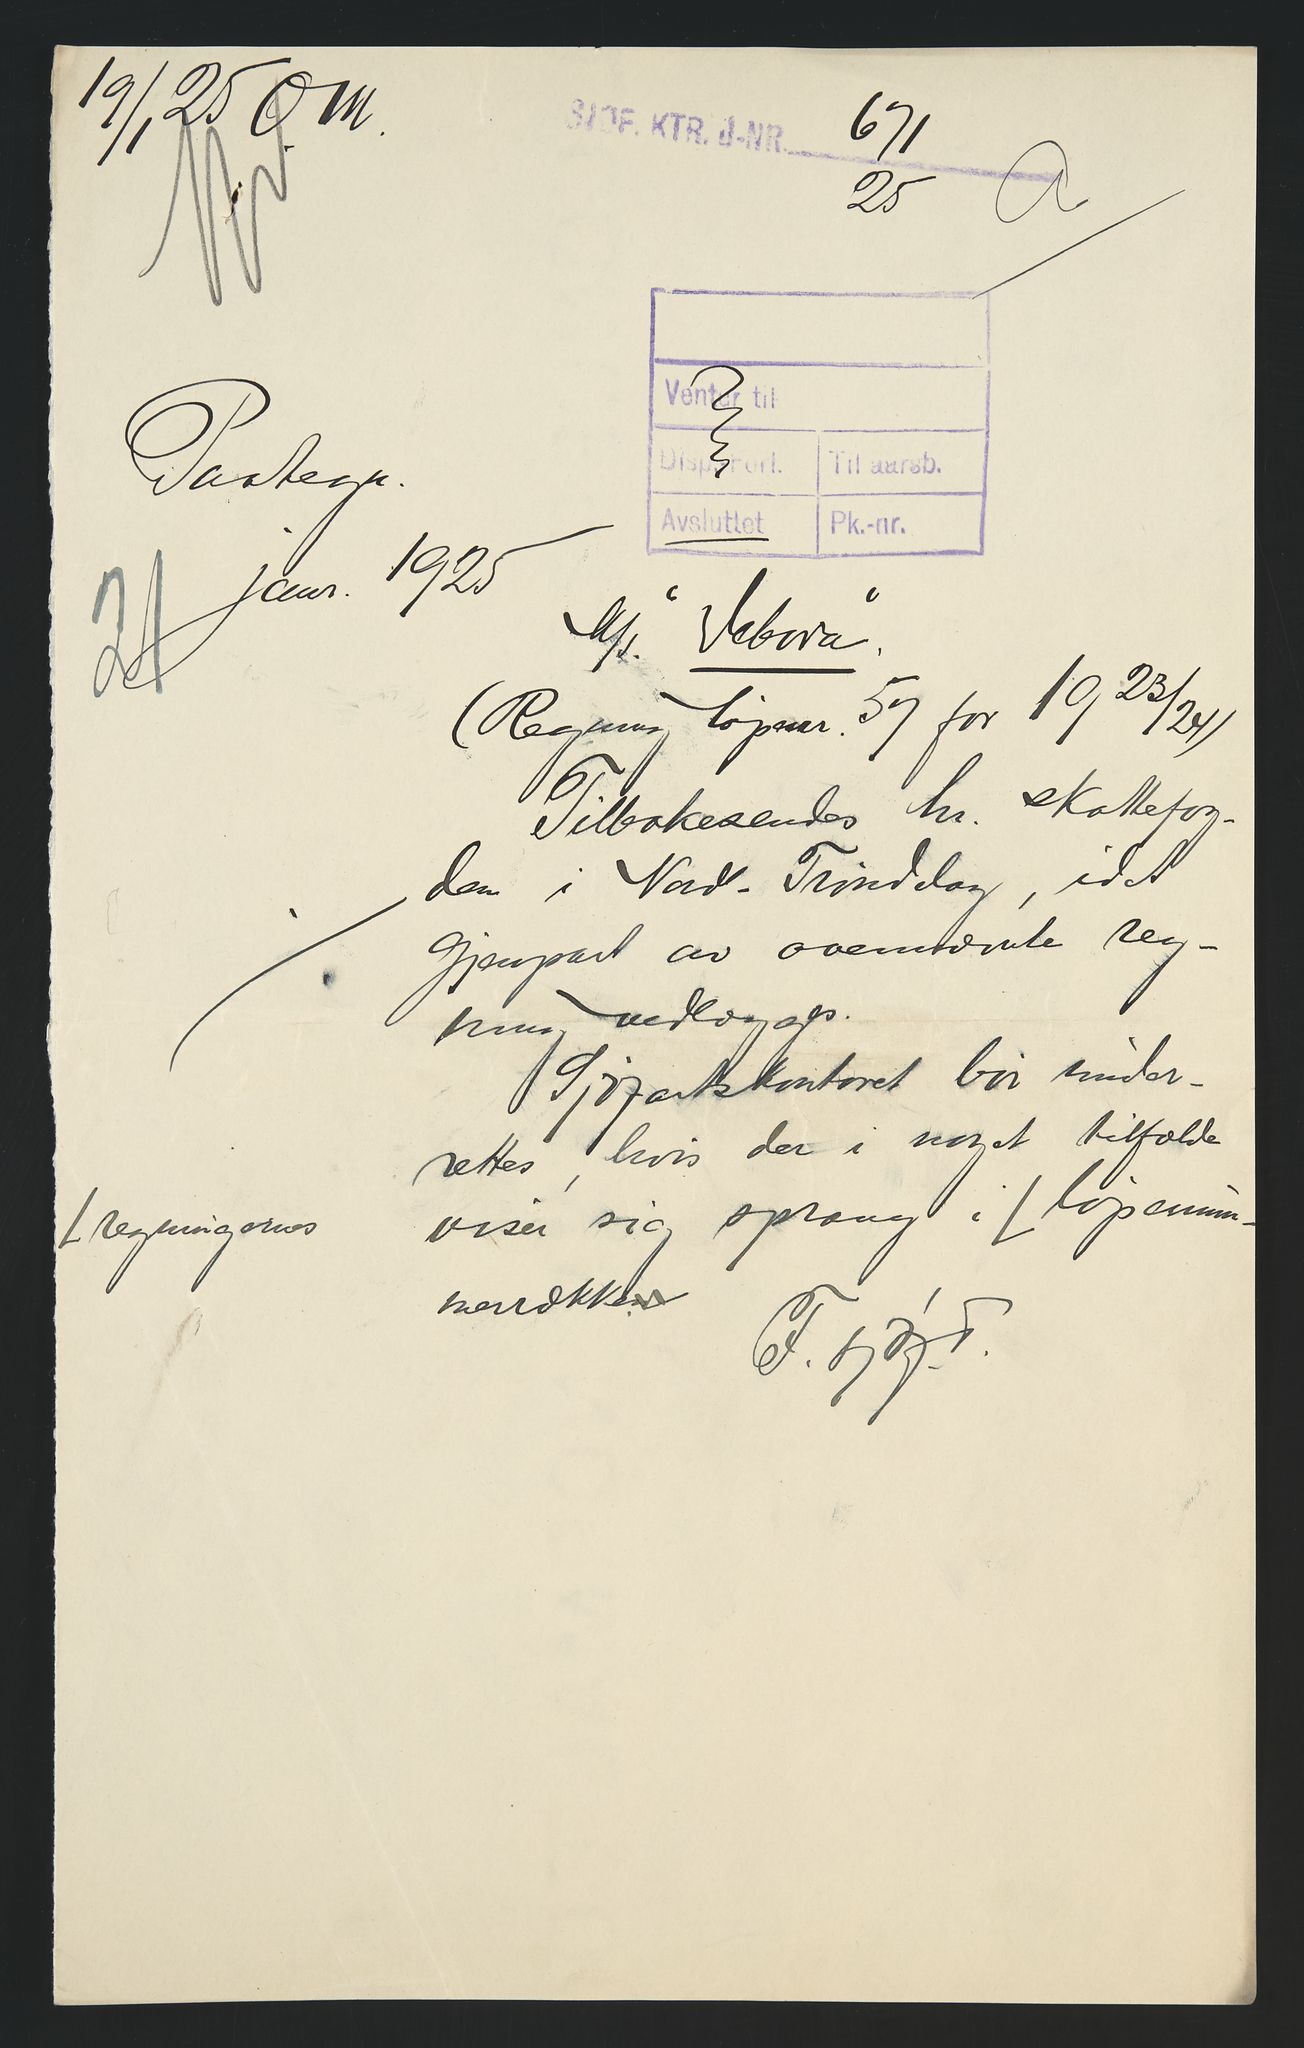 19/1 25 O M.
SJØF. KTR. J-NR. 671
25 A
Venter til
Disp. Til aarsb.
Avsluttet Pk.-nr.
Paategn.
21 janr. 1925
M/s. "Vebora".
(Regning løpenr. 57 for 1923/24)
Tilbakesendes hr. skattefog-
den i Nord-Trøndelag, idet
gjenpart av ovennævnte reg-
ning vedlægges.
Sjøfartskontoret bør under-
rettes, hvis der i noget tilfælde
viser sig sprang i [ løpenum-
[ regningernes
merrækken
F. sjøf.